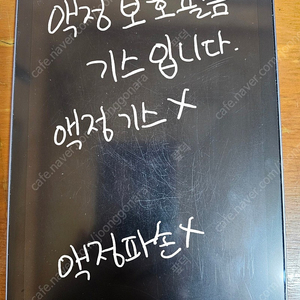 액정 보호필름
기스 입니다.
액정 기스 X
액정파손 X